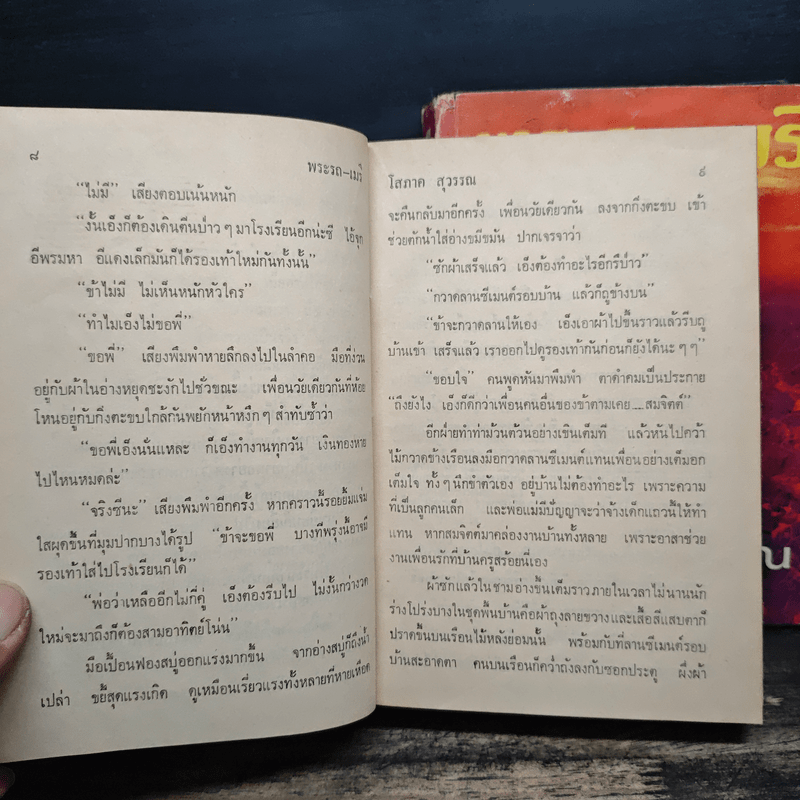 ๘
พระรถ-เมรี
“ไม่มี” เสียงตอบเน้นหนัก
“งั้นเอ็งก็ต้องเดินตีนบ่าว ๆ มาโรงเรียนอีกน่ะซี ไอ้จุก
อีพรมหา อีแดงเล็กมันก็ได้รองเท้าใหม่กันทั้งนั้น”
“ข้าไม่มี ไม่เห็นหนักหัวใคร”
“ทำไมเอ็งไม่ขอพี่”
“ขอพี่” เสียงพึมพำหายลึกลงไปในลำคอ มือที่ง่วน
อยู่กับผ้าในอ่างหยุดชะงักไปชั่วขณะ เพื่อนวัยเดียวกันที่ห้อย
โหนอยู่กับกิ่งตะขบใกล้กันพยักหน้าหงึก ๆ สำทับซ้ำว่า
“ขอพี่เอ็งนั่นแหละ ก็เอ็งทำงานทุกวัน เงินทองหาย
ไปไหนหมดล่ะ”
“จริงซีนะ” เสียงพึมพำอีกครั้ง หากคราวนี้รอยยิ้มแจ่ม
ใสผุดขึ้นที่มุมปากบางได้รูป “ข้าจะขอพี่ บางทีพรุ่งนี้อาจมี
รองเท้าใส่ไปโรงเรียนก็ได้”
“พ่อว่าเหลืออีกไม่กี่คู่ เอ็งต้องรีบไป ไม่งั้นกว่างวด
ใหม่จะมาถึงก็ต้องสามอาทิตย์โน่น”
มือเปื้อนฟองสบู่ออกแรงมากขึ้น จากอ่างสบู่ก็ถึงน้ำ
เปล่า ขยี้สุดแรงเกิด ดูเหมือนเรี่ยวแรงทั้งหลายที่หายเหือด
โสภาค สุวรรณ
๙
จะคืนกลับมาอีกครั้ง เพื่อนวัยเดียวกัน ลงจากกิ่งตะขบ เข้า
ช่วยตักน้ำใส่อ่างขมีขมัน ปากเจรจาว่า
“ซักผ้าเสร็จแล้ว เอ็งต้องทำอะไรอีกรึบ่าว”
“กวาดลานซีเมนต์รอบบ้าน แล้วก็ถูข้างบน”
“ข้าจะกวาดลานให้เอง เอ็งเอาผ้าไปขึ้นราวแล้วรีบถู
บ้านเข้า เสร็จแล้ว เราออกไปดูรองเท้ากันก่อนก็ยังได้นะ ๆ ๆ”
“ขอบใจ” คนพูดหันมาพึมพำ ตาดำคมเป็นประกาย
“ถึงยังไง เอ็งก็ดีกว่าเพื่อนคนอื่นของข้าตามเคย...สมจิตต์”
อีกฝ่ายทำท่าม้วนต้วนอย่างเขินเต็มที แล้วหันไปคว้า
ไม้กวาดข้างเรือนลงมือกวาดลานซีเมนต์แทนเพื่อนอย่างเต็มอก
เต็มใจ ทั้ง ๆ นึกขำตัวเอง อยู่บ้านไม่ต้องทำอะไร เพราะความ
ที่เป็นลูกคนเล็ก และพ่อแม่มีปัญญาจะว่าจ้างเด็กแถวนี้ให้ทำ
แทน หากสมจิตต์มาคล่องงานบ้านทั้งหลาย เพราะอาสาช่วย
งานเพื่อนรักที่บ้านครูสร้อยนี่เอง
ผ้าซักแล้วในชามอ่างขึ้นเต็มราวภายในเวลาไม่นานนัก
ร่างโปร่งบางในชุดพื้นบ้านคือผ้าถุงลายขวางและเสื้อสีแสบตาก็
ปราดขึ้นบนเรือนไม้หลังย่อมนั้น พร้อมกับที่ลานซีเมนต์รอบ
บ้านสะอาดตา คนบนเรือนก็คว่ำถังลงกับซอกประตู ผึ่งผ้า